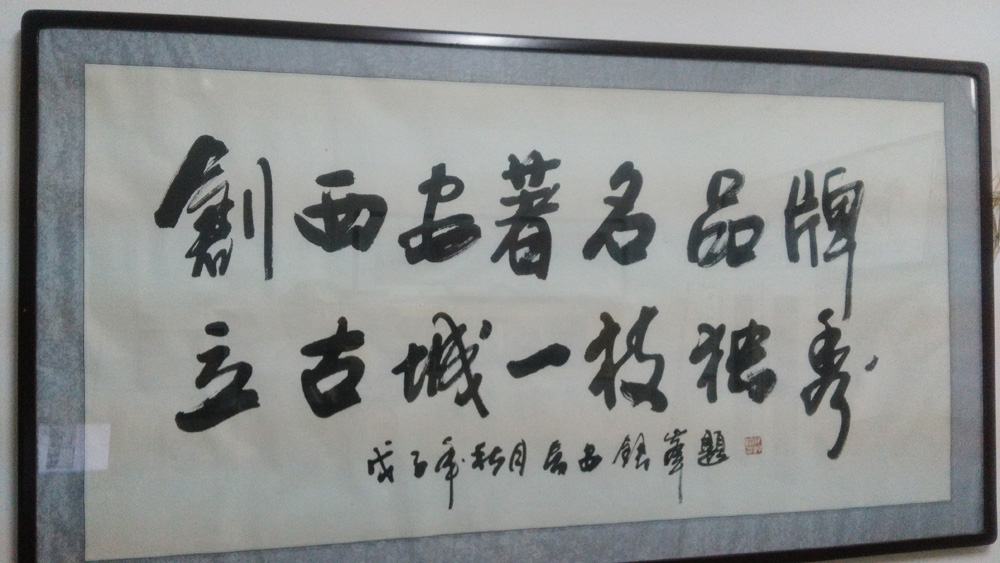 創西安著名品牌
立古城一枝独秀
戊子年秋月长安铁峰題